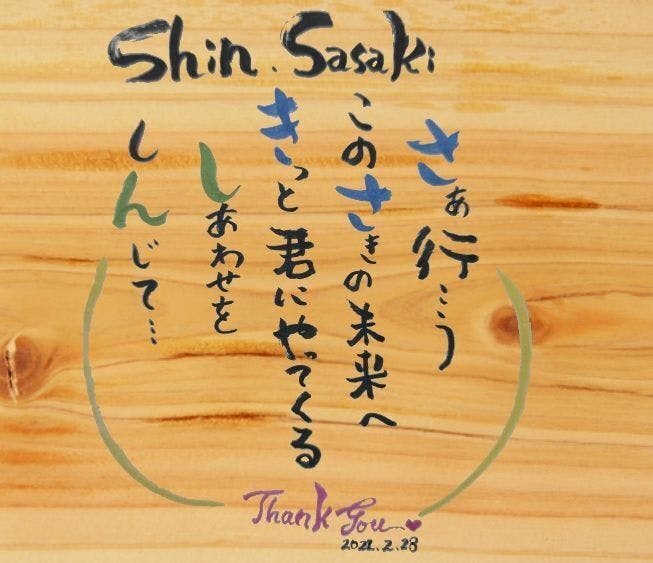 Shin. Sasaki
さぁ行こう
このさきの未来へ
きっと君にやってくる
しあわせを
しんじて…
Thank You
2022.2.28